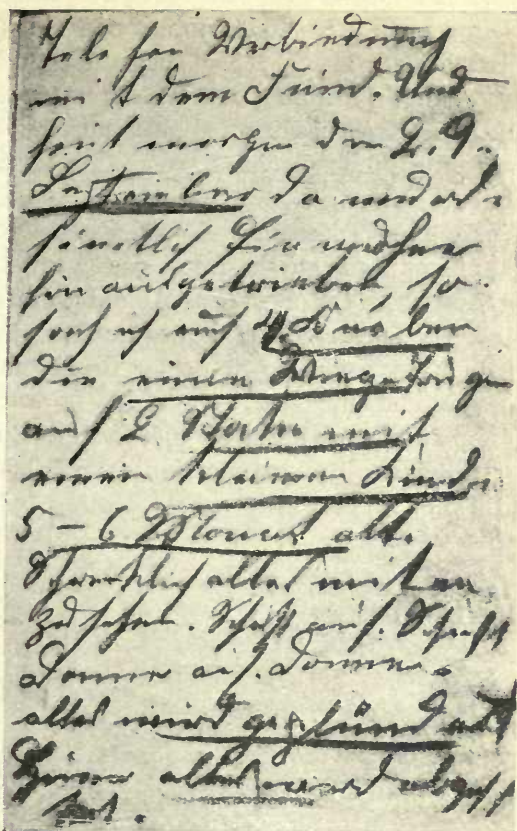 Tele fon Verbiednung
mit dem Feind. Und
heut morgen den 2. 9.
da wurde
sämtlich Einwohner
hin aufgetrieben, so
sach ich auch 4 Knaben
die eine Wiege trugen
auf 2 Stab mit
einen kleinen Kinde
5 – 6 Monat alt.
Schrecklich alles mit an
zu sehen. Schuß auf. Schuß
Donner auf. Donner.
alles wird geplündert
Hüner alles ward